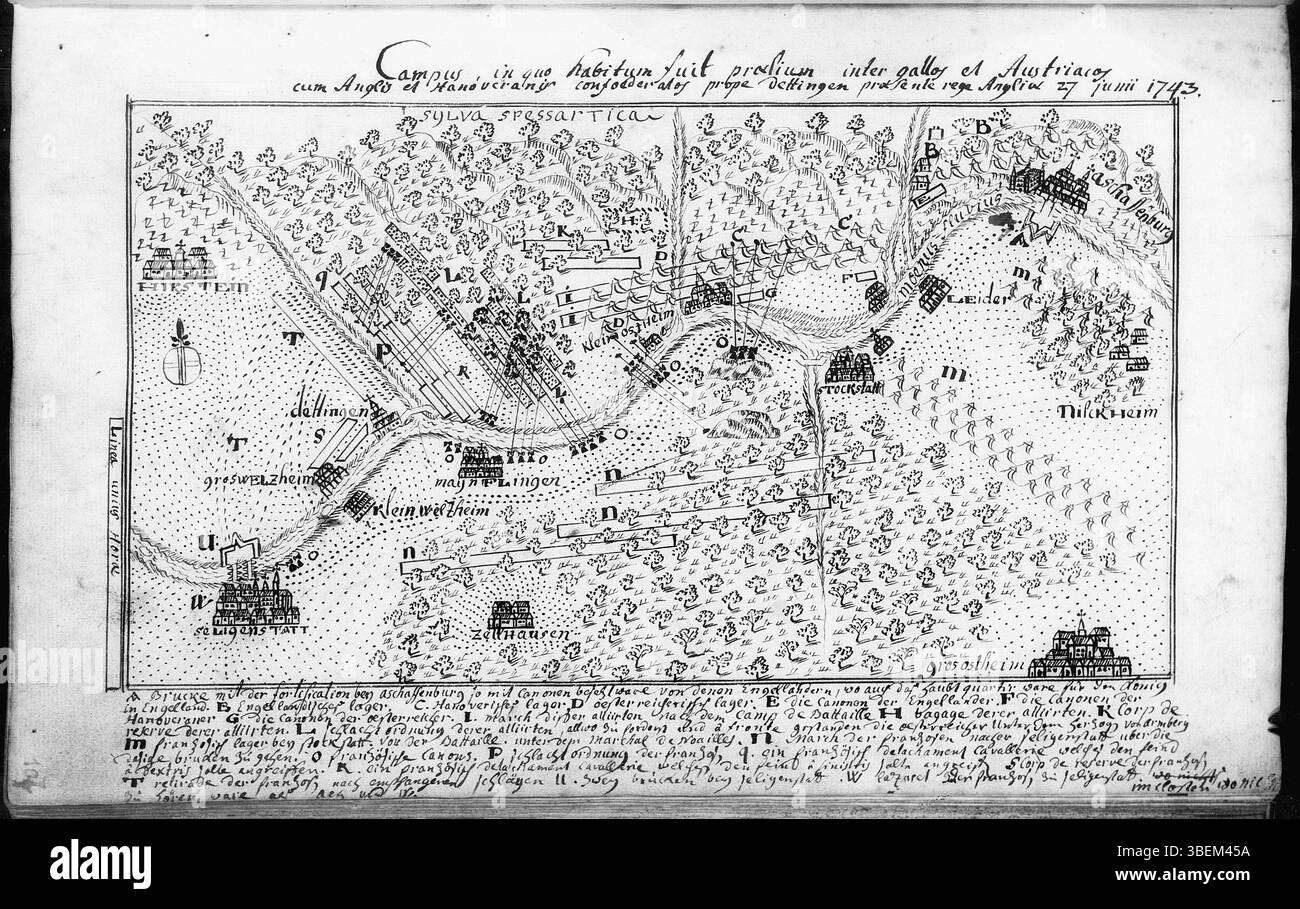 Campus in quo habitum fuit prœlium inter gallos et Austriacos
cum Anglis et Hanoveranis confoederatos prope Dettingen præsente rege Angliæ 27 junii 1743.
SYLVA SPESSARTICA
B
B
jaschaffenburg
E
A
Moenus Fluvius
HIRSTEIN
H
K
L
C
C
D
F
G
q
L
L
i
I
D
kleinostheim
LEIDER
m
T
P
R
L
O
O
STOCKSTATT
m
NILCKHEIM
dettingen
S
T
O
O
O
maynFLingen
groswELZheim
kleinwelzheim
n
n
n
Linea unius Horæ
U
O
W
SELIGENSTATT
ZELLHAUSEN
grosostheim
A Brucke mit der fortification bey aschaffenburg so mit canonen besetzt ware von denen Engelländern, wo auch das haubt quartir ware für den König
in Engelland. B Engelländisches lager. C. Hanoverisches lager. D oesterreicherisch lager. E die canonen der Engelländer. F die canonen der
Hanoveraner G die canonen der oesterreicher. I. march disser alliirten nach dem Camp de Battaille H bagage derer alliirten. K Corp de
reserve derer alliirten. L schlacht ordnung derer alliirten, allwo zu forderst und à fronte gestanden die oesterreicher unter dem Herzog von Aremberg
m französisch lager bey stockstatt vor der Battaille unter dem marchal de Noailles. N march der franzosen nacher seligenstatt über die
dasige brucken zu gehen. O französische canons. P schlacht ordnung der franzosen. q. ein französisch detachament cavallerie welches den feind
à dextris solte angreiffen. R ein französisch detachament cavallerie welches den feind à sinistris solte angreiffen S Corp de reserve der franzosen
T retirade der franzosen nach empfangenen schlägen U. zwey brucken bey seligenstatt. W lazaret der franzosen zu seligenstatt.
im closter
alamy
Image ID: 3BEM45A
www.alamy.com